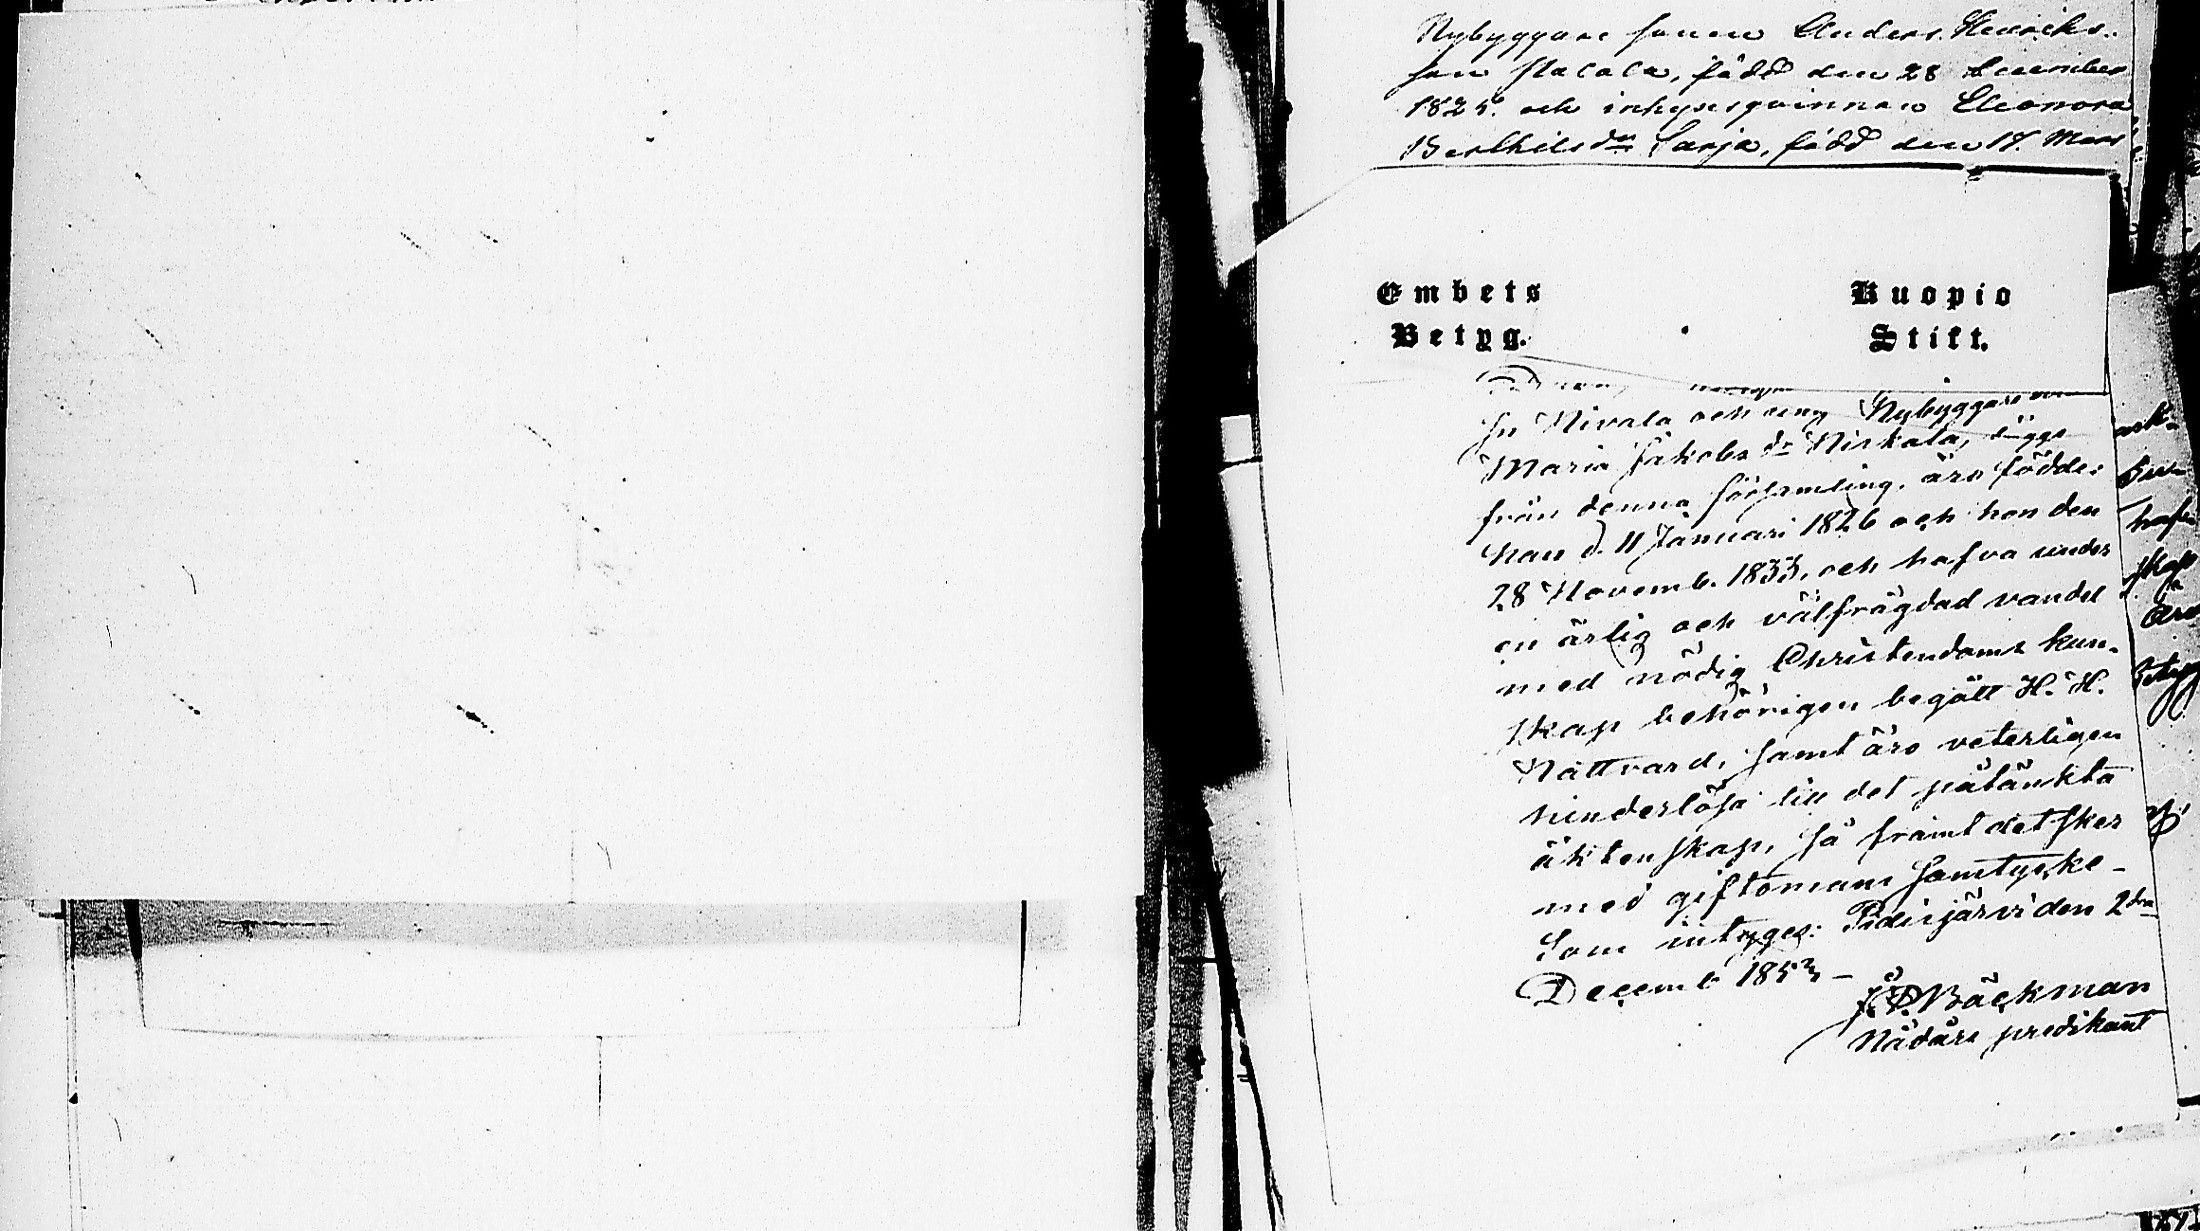 Nybyggare sonen Anders Henriks-
son Stacala, född den 28 December
1825. och inhysesqvinnan Eleonora
Berthilsdr Sarja, född den 17. Mars
Embets
Betyg.
Kuopio
Stift.
fr Nivala och
Maria Jakobs dr Niskala,
från denna församling, äro födde:
han d. 11 Januari 1826 och hon den
28 Novemb. 1833, och hafva under
en ärlig och välfrägdad vandel
med nödig Christendoms kun-
skap behörigen begått H. H.
Nattvard, samt äro veterligen
hinderlösa till det påtänkta
äktenskap, så framt det sker
med giftomans samtycke-
Som intygas: Pidisjärvi den 2dra
Decemb 1853 –
Bäckman
Nådårs predikant